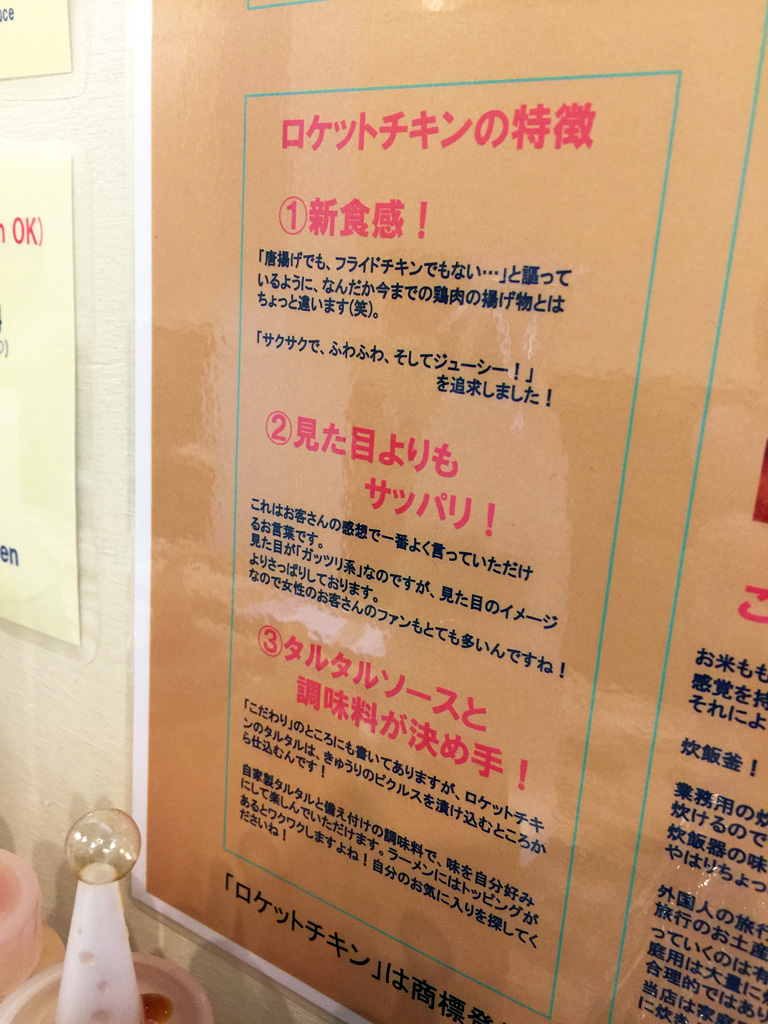 uce
n OK)
en
ロケットチキンの特徴
①新食感！
「唐揚げでも、フライドチキンでもない…」と謳って
いるように、なんだか今までの鶏肉の揚げ物とは
ちょっと違います(笑)。
「サクサクで、ふわふわ、そしてジューシー！」
を追求しました！
②見た目よりも
サッパリ！
これはお客さんの感想で一番よく言っていただけ
るお言葉です。
見た目が「ガッツリ系」なのですが、見た目のイメージ
よりさっぱりしております。
なので女性のお客さんのファンもとても多いんですね！
③タルタルソースと
調味料が決め手！
「こだわり」のところにも書いてありますが、ロケットチキ
ンのタルタルは、きゅうりのピクルスを漬け込むところか
ら仕込むんです！
自家製タルタルと備え付けの調味料で、味を自分好み
にして楽しんでいただけます。ラーメンにはトッピングが
あるとワクワクしますよね！自分のお気に入りを探してく
ださいね！
「ロケットチキン」は商標登
こ
お米もも
感覚を持
それによ
炊飯釜！
業務用の炊
炊けるので
炊飯器の味
やはりちょっ
外国人の旅行
旅行のお土産
っていくのは有
庭用は大量に
合理的ではあり
当店は家庭
に炊き